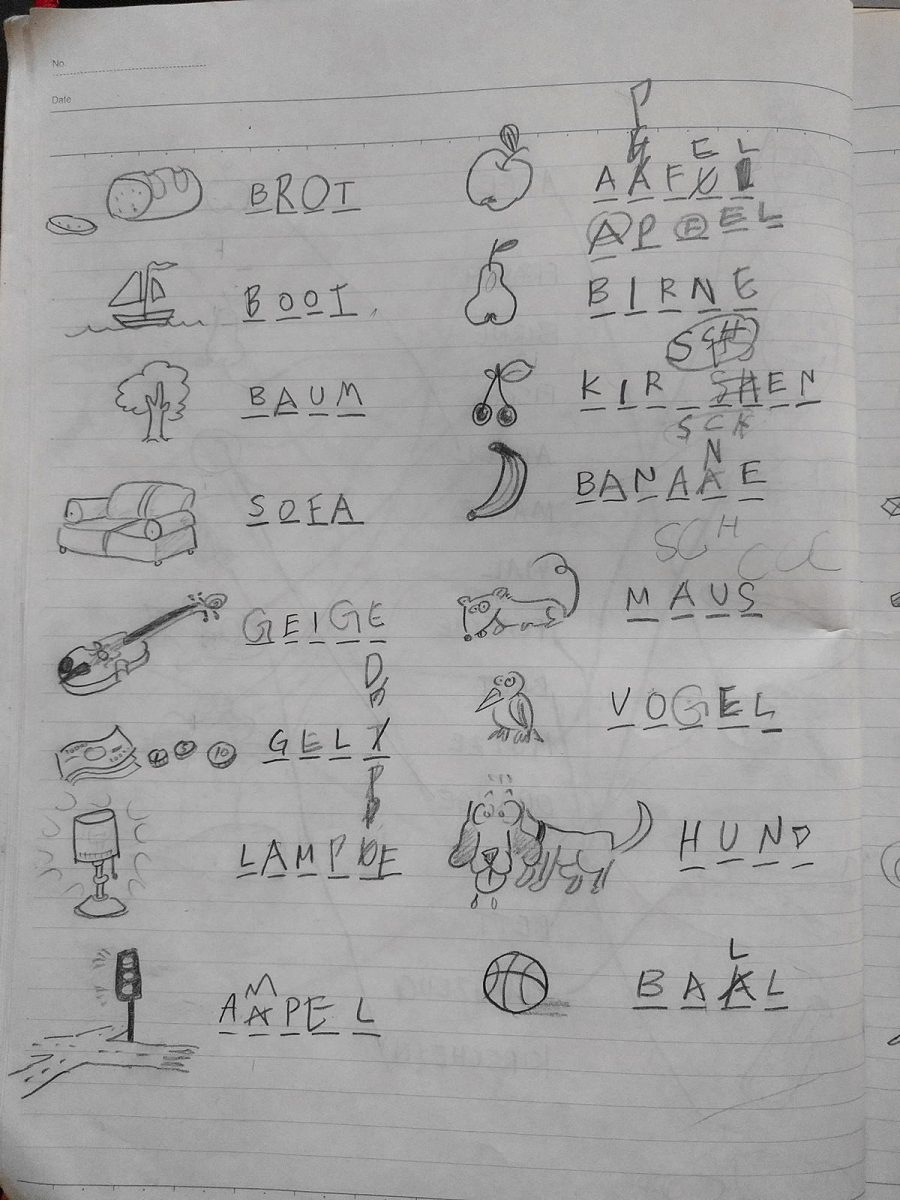 No.
Date
BROT
BOOT
BAUM
SOFA
GEIGE
D
GELT
10
P
LAMPE
M
AAPEL
P
E L
AAFUL
APFEL
BIRNE
SCH
KIR SHEN
SCH
N
BANAAE
SCH
MAUS
VOGEL
HUND
L
BAAL